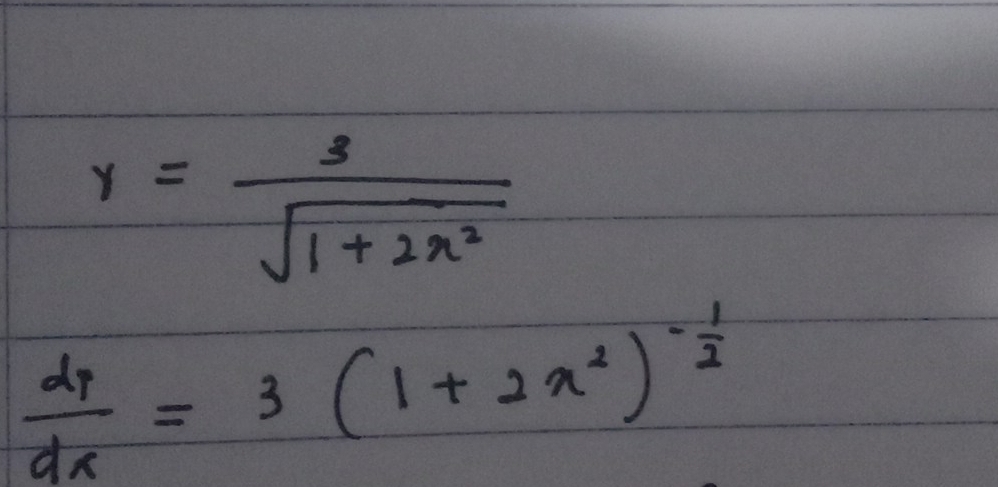 y = 3 / √(1 + 2x²)
dy/dx = 3 (1 + 2x²)^(-1/2)